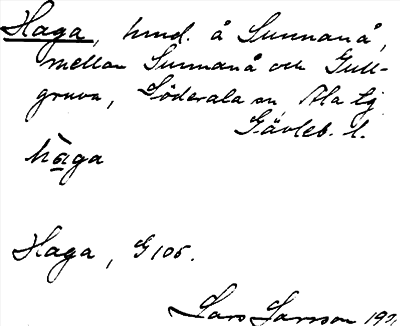 Haga, hmd. å Sunnanå,
mellan Sunnanå och Gull-
gruva, Söderala sn, Ala tg
Gävleb. l.
hàga
Haga, G 106.
Lars Larsson